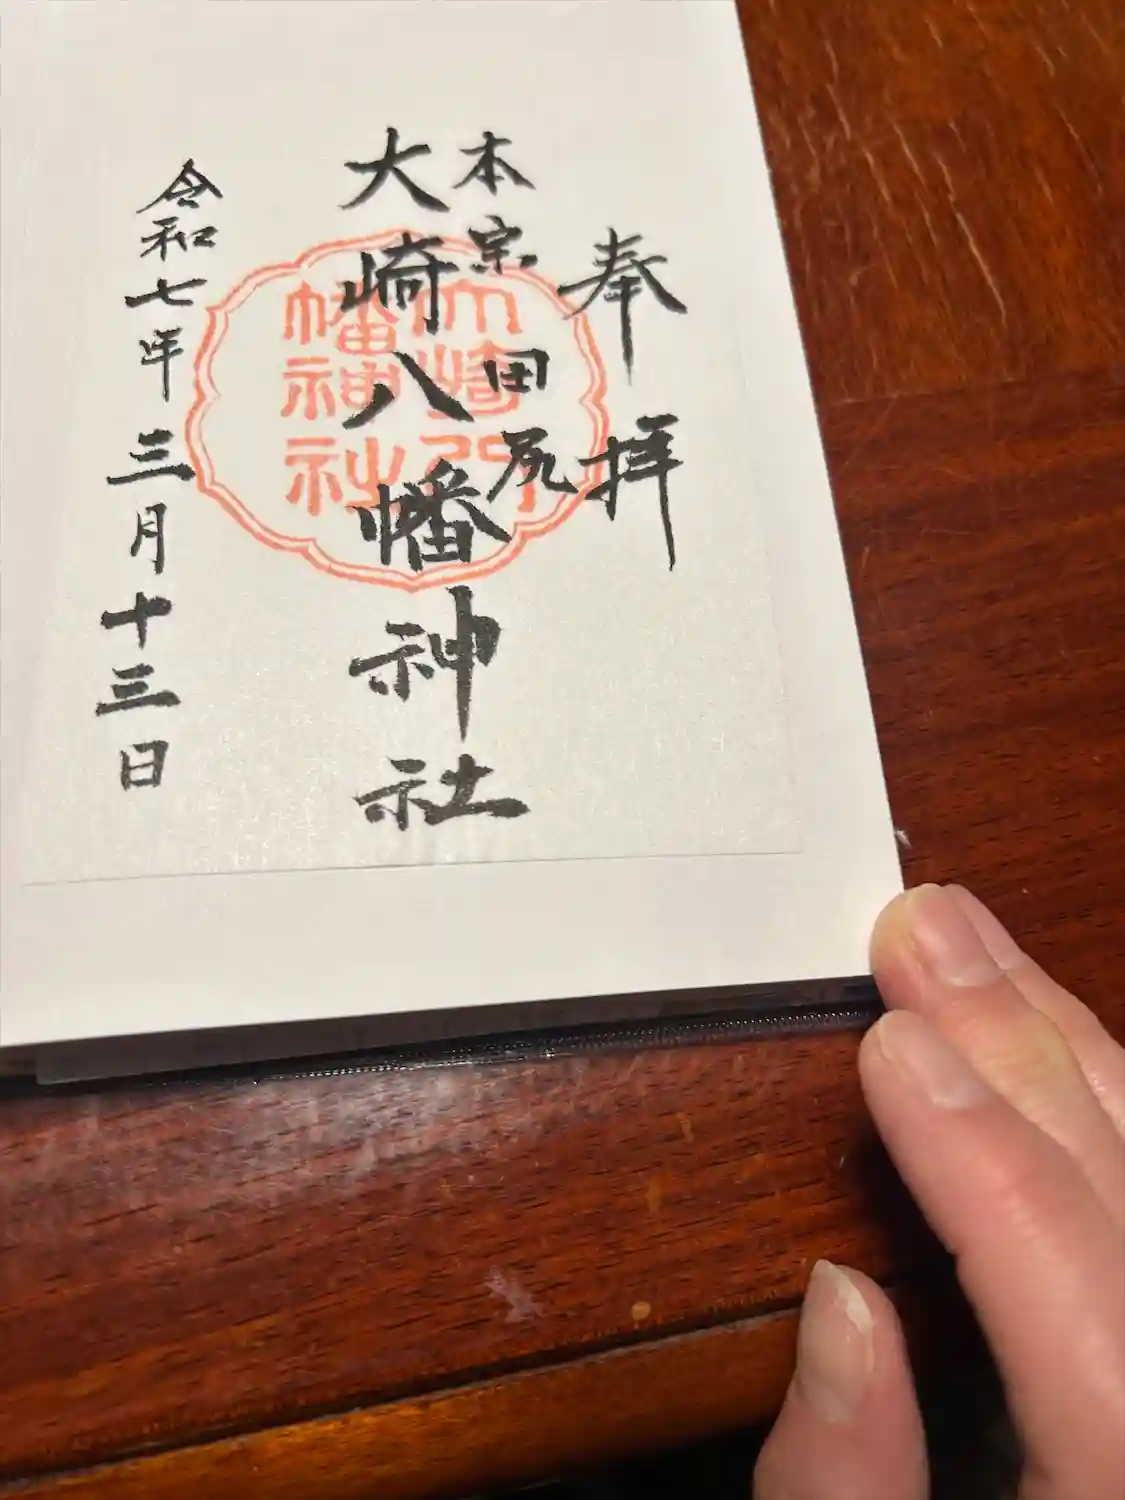 奉拝
本宗 田尻
大崎八幡神社
大崎八
幡神社
令和七年 三月十三日